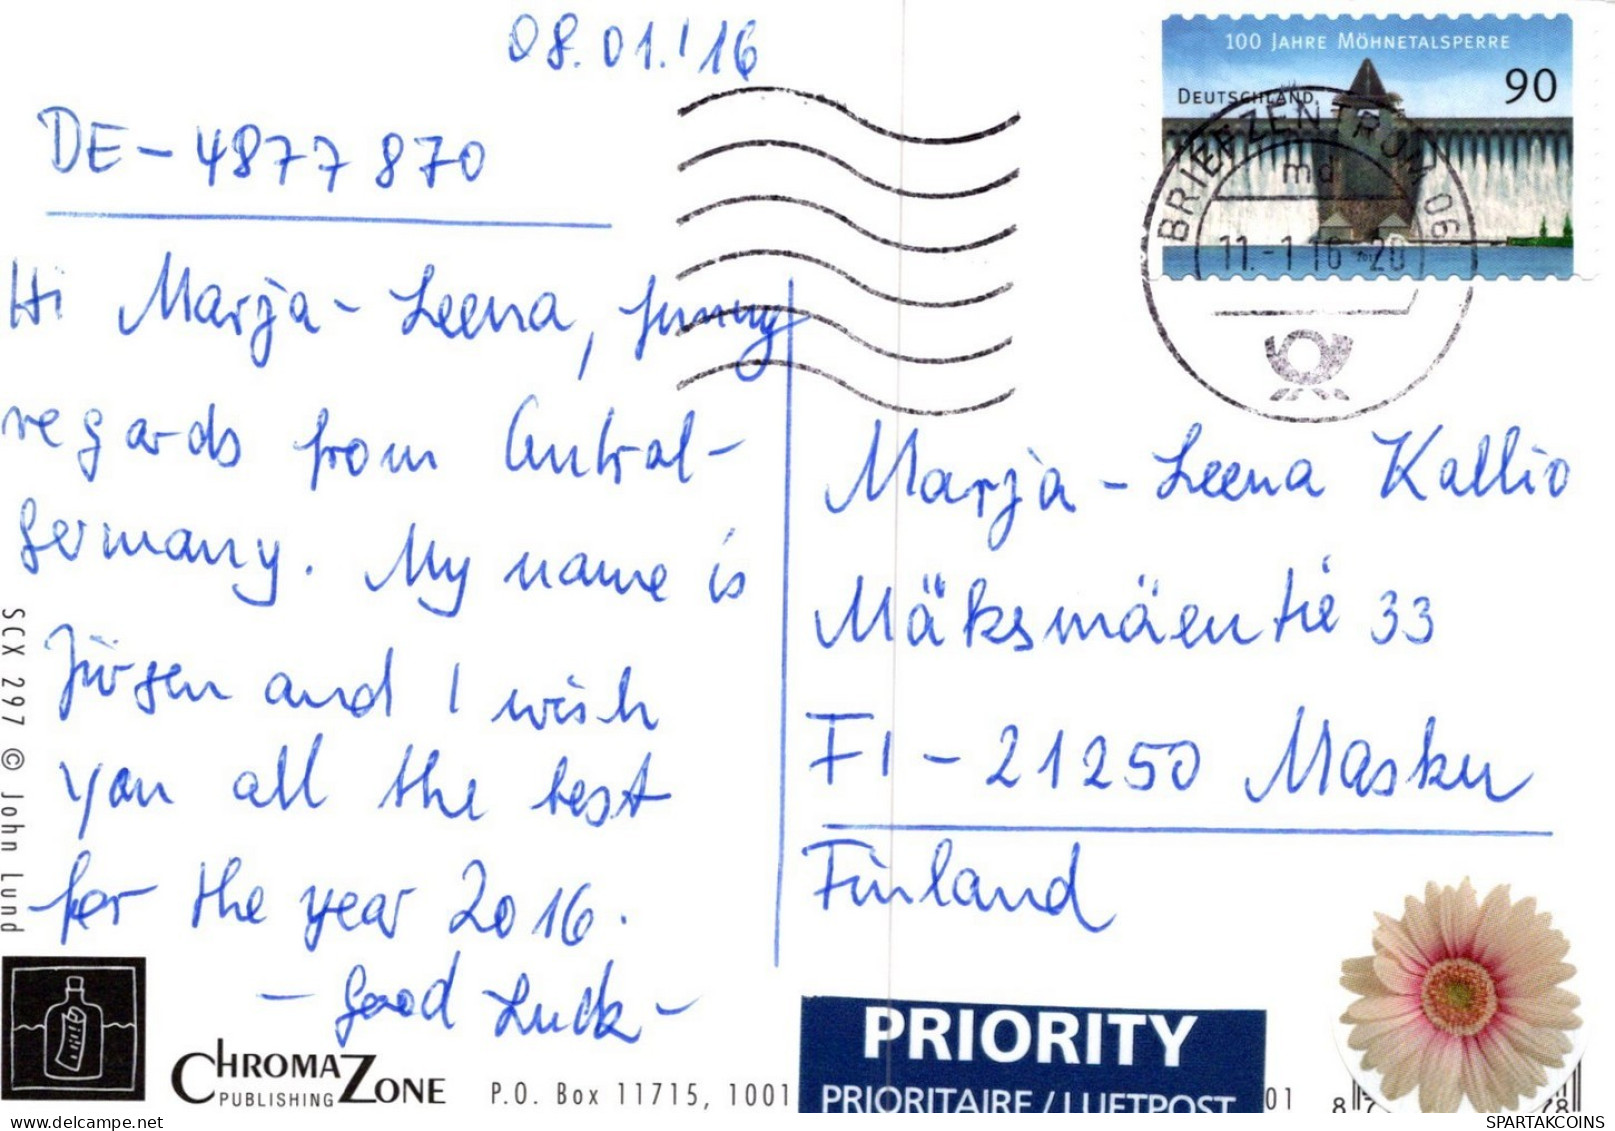 08.01.'16
DE-4877870
Hi Marja-Leena, sunny
regards from Central-
Germany. My name is
Jürgen and I wish
you all the best
for the year 2016.
- Good Luck -
100 JAHRE MÖHNETALSPERRE
DEUTSCHLAND
90
BRIEFZENTRUM 06
md
11.-1.16-20
Marja-Leena Kallio
Mäksmäentie 33
FI-21250 Masku
Finland
SCX 297 © John Lund
CHROMAZONE
PUBLISHING
P.O. Box 11715, 1001
PRIORITY
PRIORITAIRE / LUFTPOST
01
8 7
78
ebay.de/str/dlmv
SPARTAKCOINS